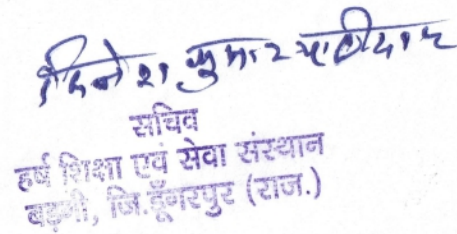 दिनेश कुमार पाटीदार
सचिव
हर्ष शिक्षा एवं सेवा संस्थान
जि.डूँगरपुर (राज.)